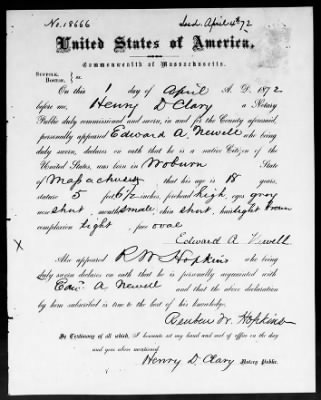 No. 18666 Issd. April 4 /72
United States of America.
Commonwealth of Massachusetts.
SUFFOLK,
BOSTON. ss.
On this 1 day of April A. D. 1872
before me, Henry D Clary a Notary
Public duly commissioned and sworn, in and for the County aforesaid,
personally appeared Edward A. Newell who being
duly sworn, declares on oath that he is a native Citizen of the
United States, was born in Woburn State
of Massachusetts, that his age is 18 years,
stature 5 feet 6 1/2 inches, forehead high, eyes gray
nose short, mouth small, chin short, hair light brown
complexion light, face oval
Edward A Newell
Also appeared R W Hopkins who being
duly sworn declares on oath that he is personally acquainted with
Edwd A Newell and that the above declaration
by him subscribed is true to the best of his knowledge.
Reuben W. Hopkins
In Testimony of all which, I hereunto set my hand and seal of office on the day
and year above mentioned.
Henry D. Clary Notary Public.